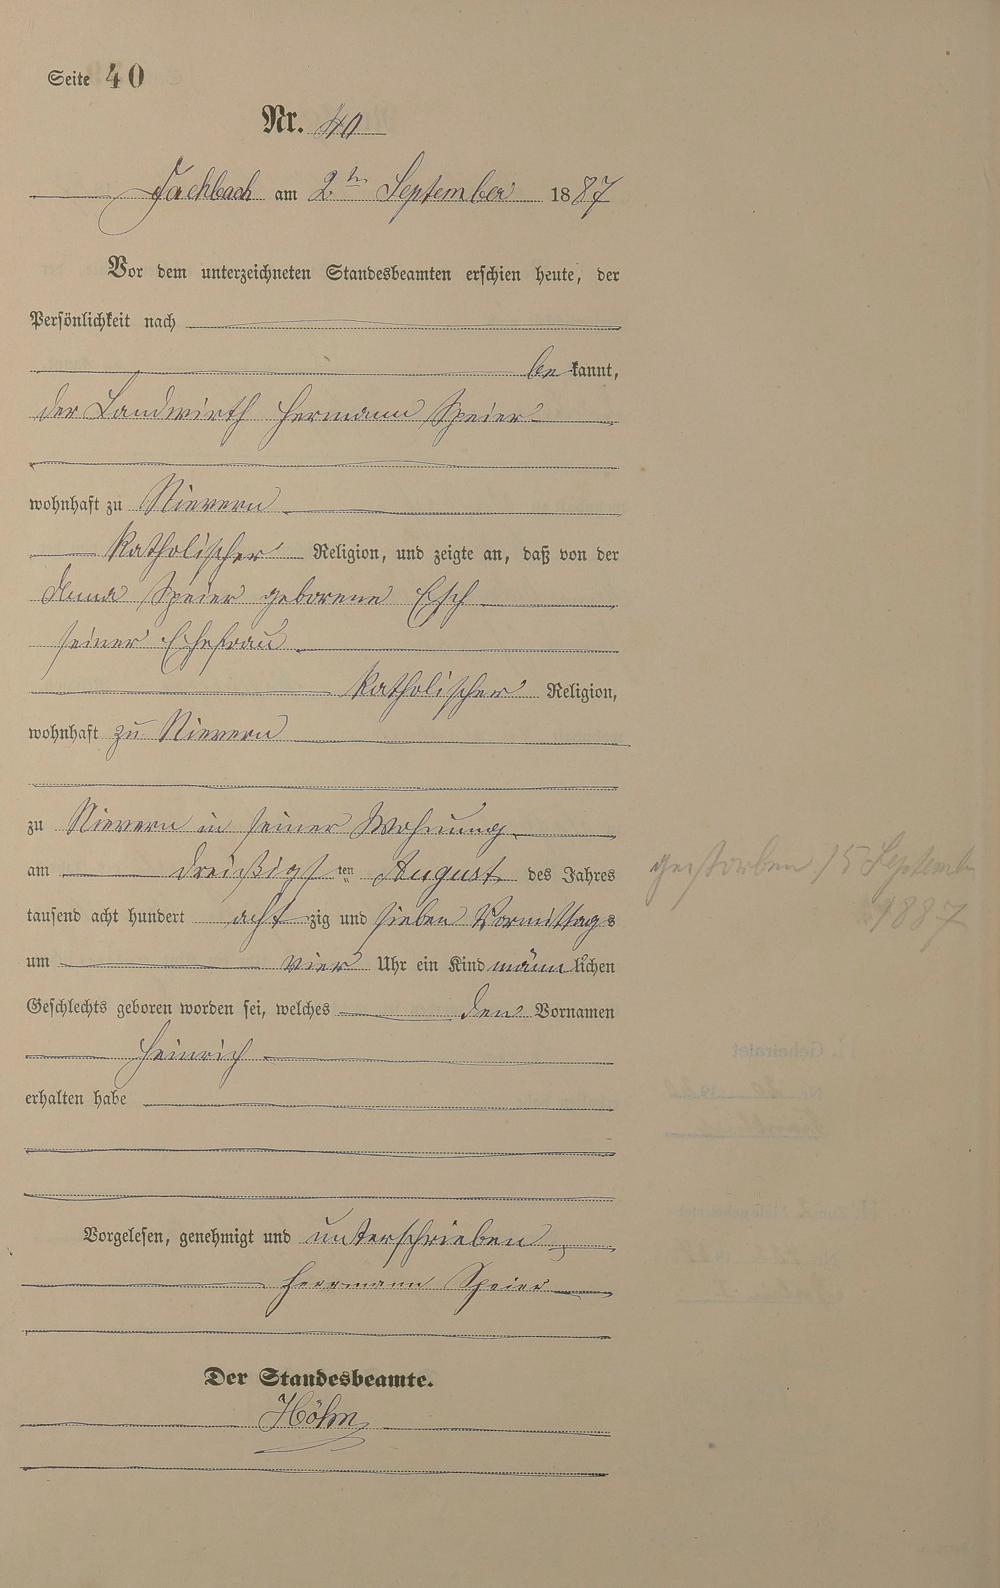 Seite 40
Nr. 40
Fachbach am 2ten September 1887
Vor dem unterzeichneten Standesbeamten erschien heute, der
Persönlichkeit nach
bekannt,
der Landwirth Hermann Speier
wohnhaft zu Nievern
katholischer Religion, und zeigte an, daß von der
Anna Speier geborene Esch
seiner Ehefrau
katholischer Religion,
wohnhaft zu Nievern
zu Nievern in seiner Wohnung
am dreißigsten August des Jahres
tausend acht hundert achtzig und sieben Vormittags
um vier Uhr ein Kind männlichen
Geschlechts geboren worden sei, welches den Vornamen
Heinrich
erhalten habe
Vorgelesen, genehmigt und unterschrieben
Herrmann Speier
Der Standesbeamte.
Höhn
gestorben 15 September
1887